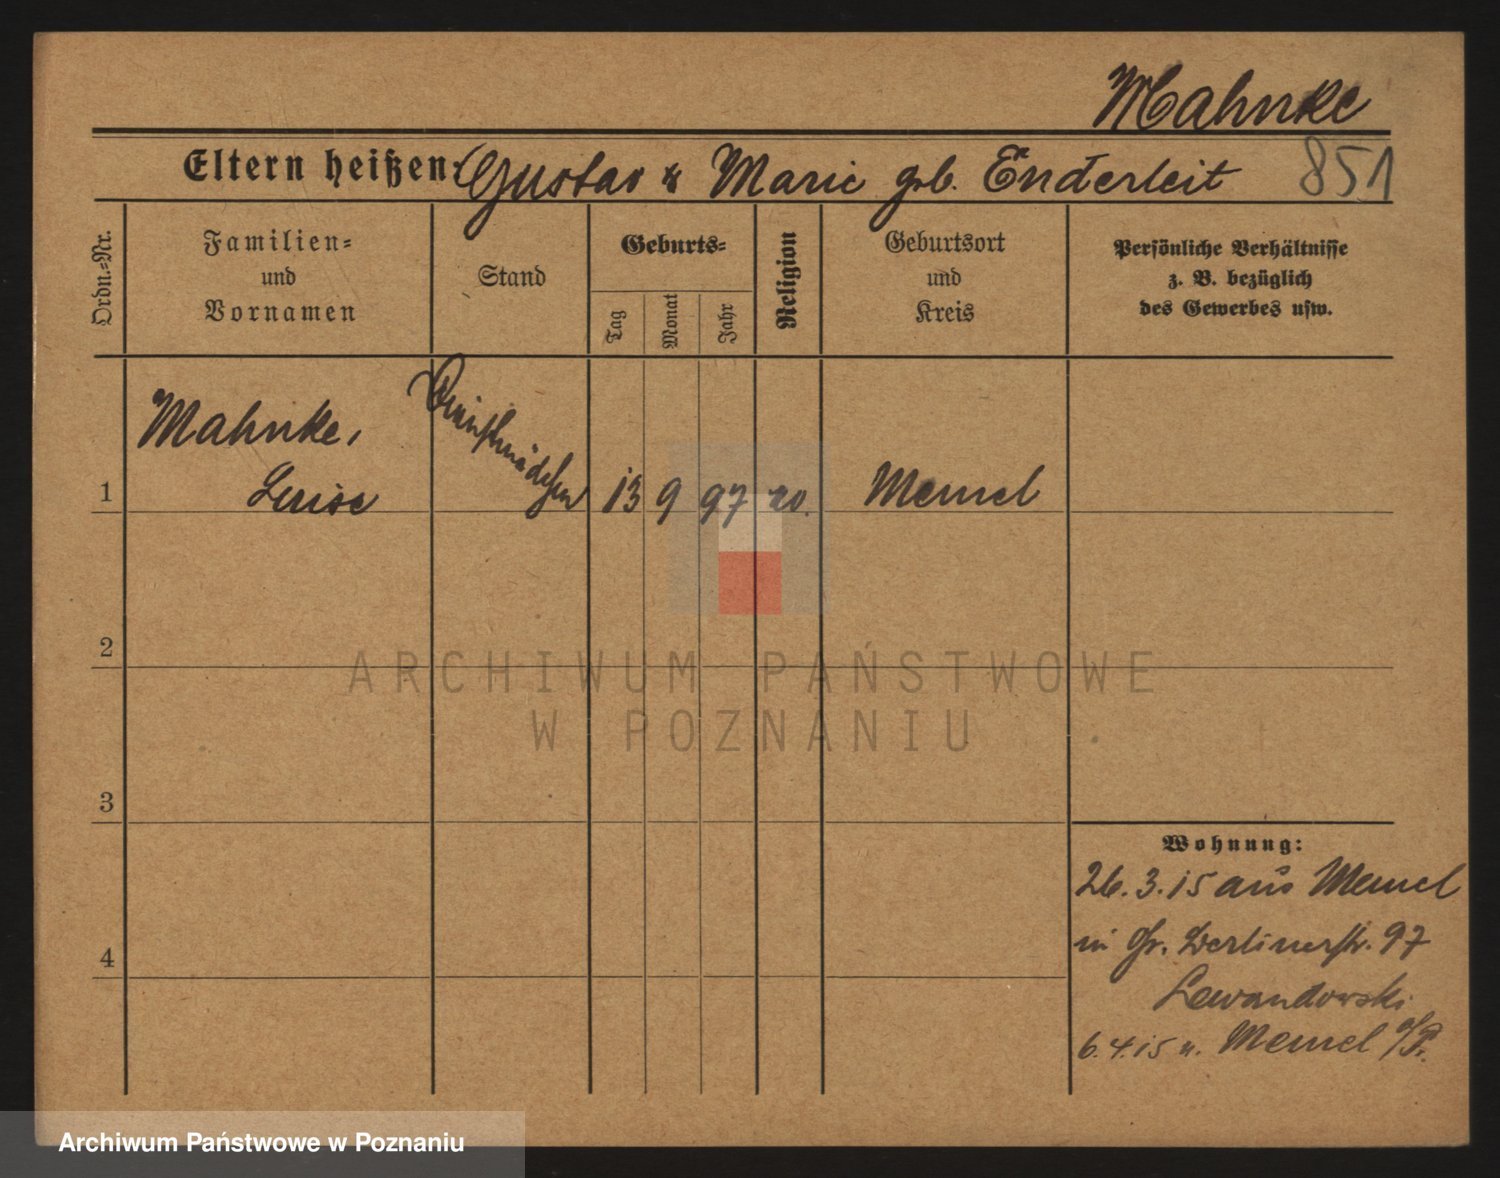 Mahnke
Eltern heißen: Gustav u Marie geb. Enderleit 851
Ordn.=Nr.
Familien=
und
Vornamen
Stand
Geburts=
Tag
Monat
Jahr
Religion
Geburtsort
und
Kreis
Persönliche Verhältnisse
z. B. bezüglich
des Gewerbes usw.
1
Mahnke,
Luise
Dienstmädchen
13 9 97 ev.
Memel
2
3
4
Wohnung:
26.3.15 aus Memel
in Gr. Berlinerstr. 97
Lewandowski
6.4.15 n. Memel
ARCHIWUM PAŃSTWOWE
W POZNANIU
Archiwum Państwowe w Poznaniu